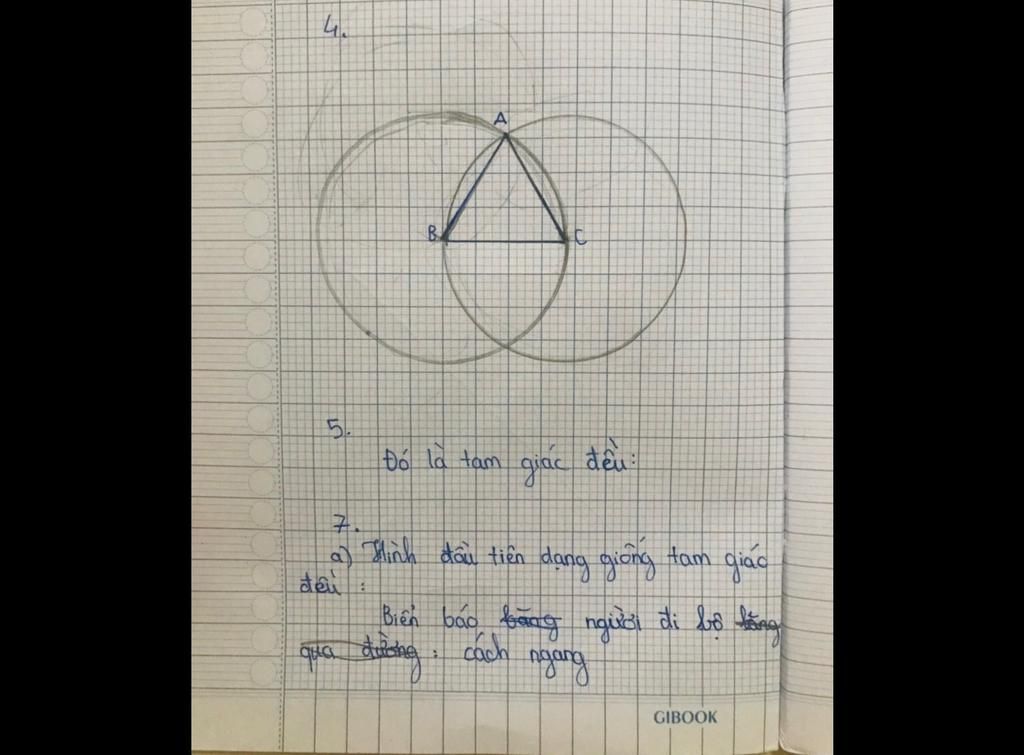 4.
A
B
C
5.
Đó là tam giác đều:
7.
a) Hình đầu tiên dạng giống tam giác
đều :
Biển báo băng người đi bộ băng
qua đường : cách ngang
GIBOOK